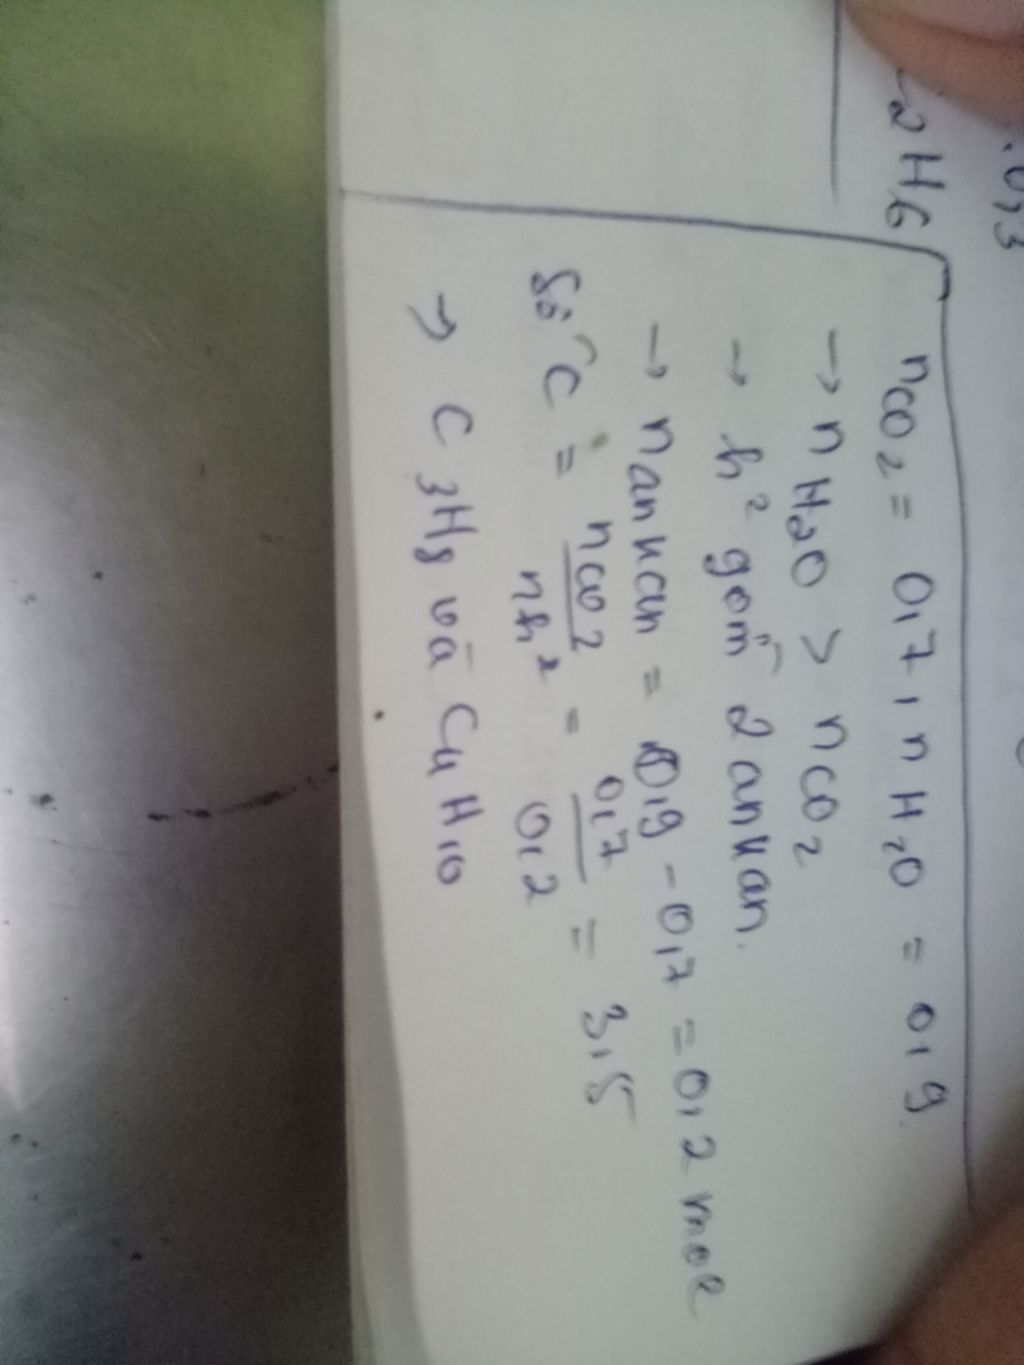 0,3
2H6
nCO2 = 0,7, nH2O = 0,9.
→ nH2O > nCO2
→ h² gồm 2 ankan.
→ nankan = 0,9 - 0,7 = 0,2 mol
Số C = nCO2 / nh² = 0,7 / 0,2 = 3,5
→ C3H8 và C4H10